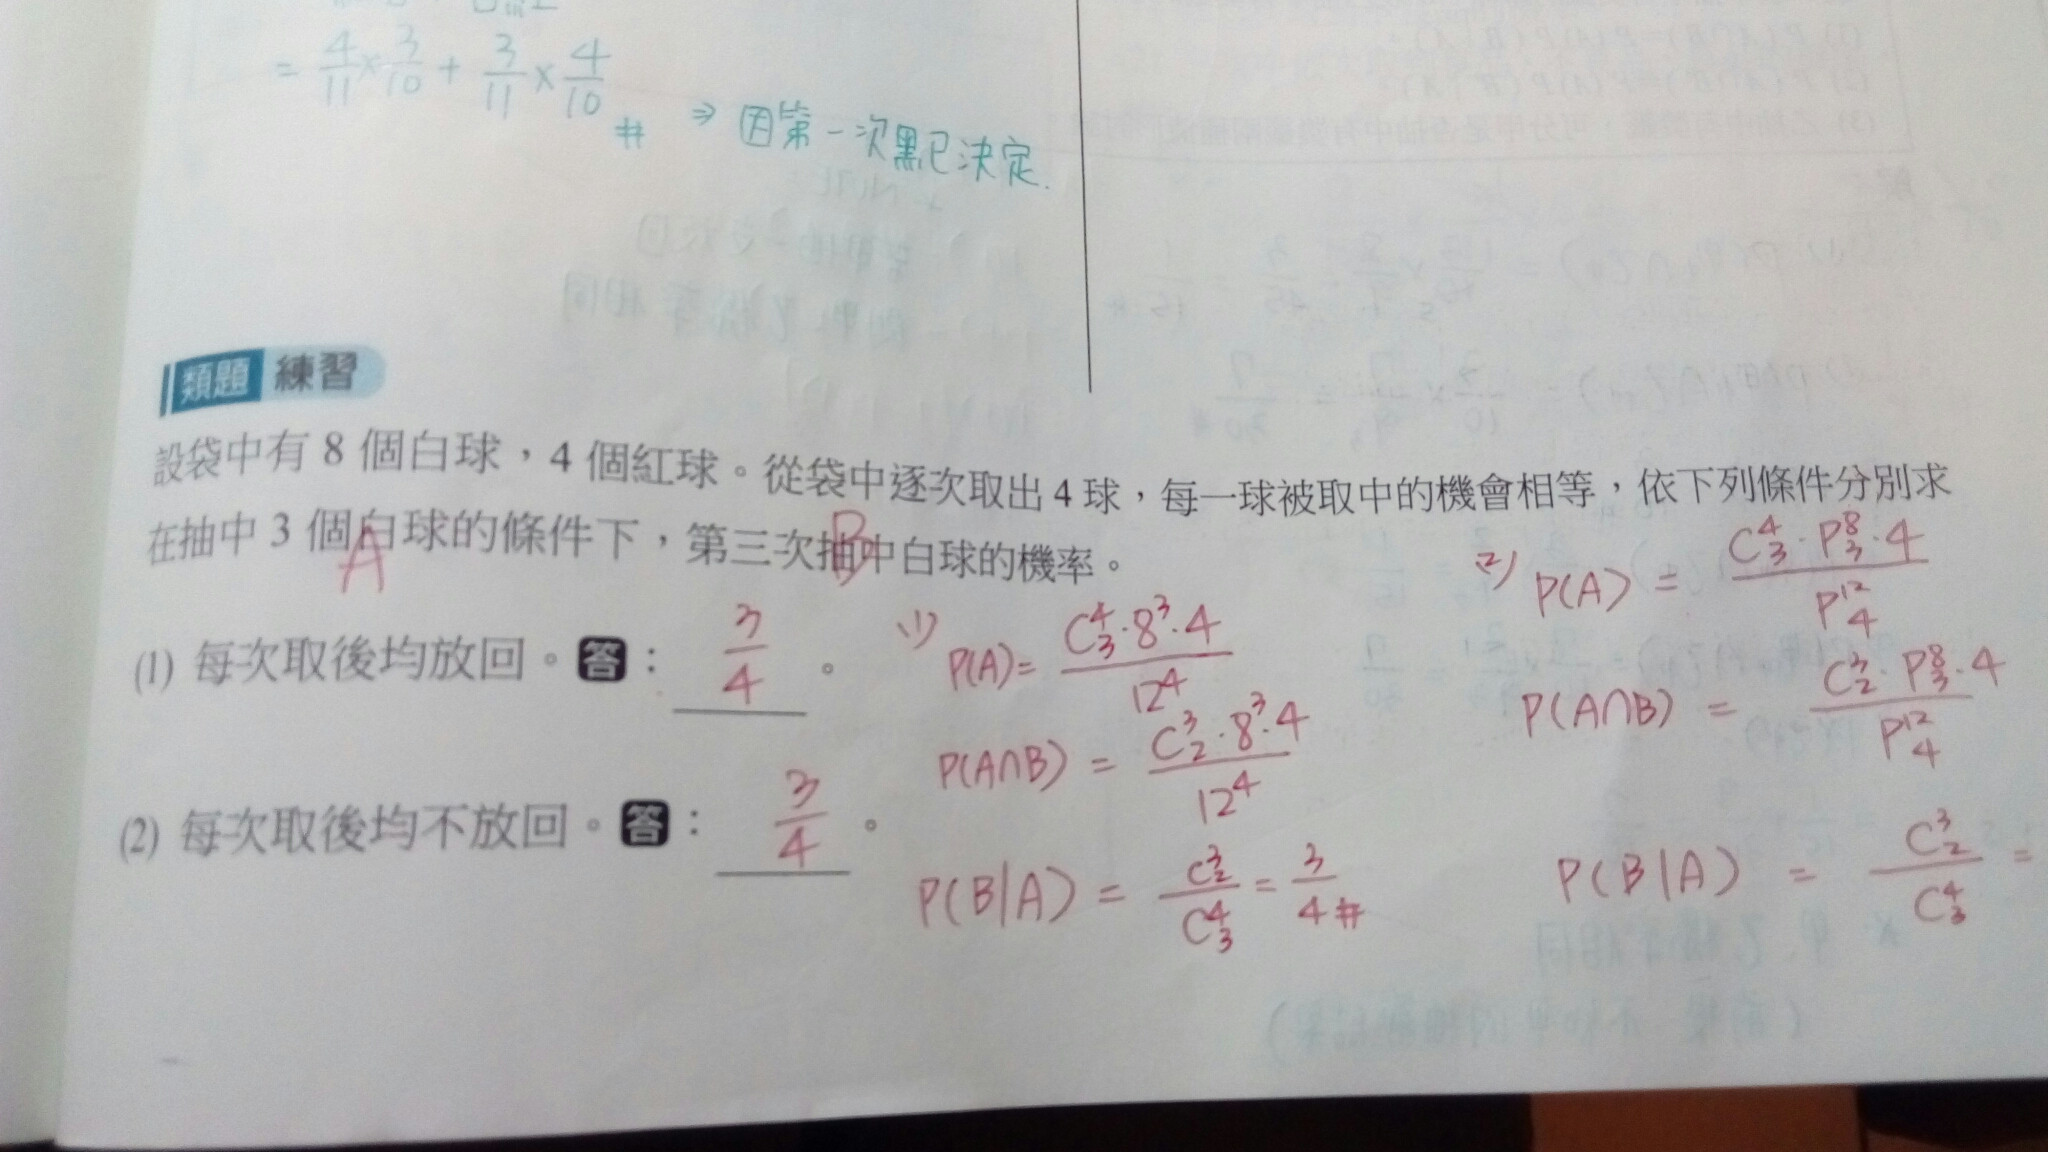 = 4/11 × 3/10 + 3/11 × 4/10 #
⇒ 因第一次黑已決定.
類題 練習
設袋中有 8 個白球，4 個紅球。從袋中逐次取出 4 球，每一球被取中的機會相等，依下列條件分別求
在抽中 3 個白球的條件下，第三次抽中白球的機率。
A B
(1) 每次取後均放回。答：3/4。
(2) 每次取後均不放回。答：3/4。
(1) P(A) = C⁴₃·8³·4 / 12⁴
P(A∩B) = C³₂·8³·4 / 12⁴
P(B|A) = C³₂ / C⁴₃ = 3/4 #
(2) P(A) = C⁴₃·P⁸₃·4 / P¹²₄
P(A∩B) = C³₂·P⁸₃·4 / P¹²₄
P(B|A) = C³₂ / C⁴₃ =